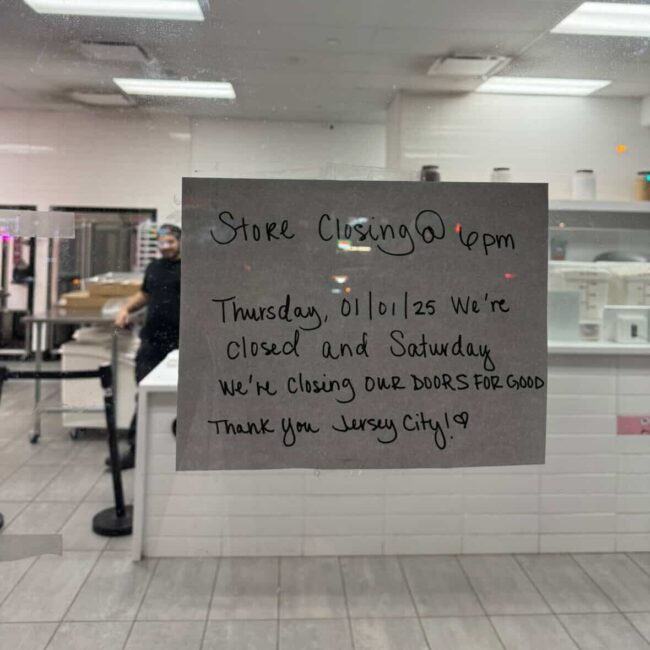 Store Closing @ 6pm
Thursday, 01/01/25 We're
closed and Saturday
we're closing OUR DOORS FOR GOOD
Thank you Jersey City! ♡